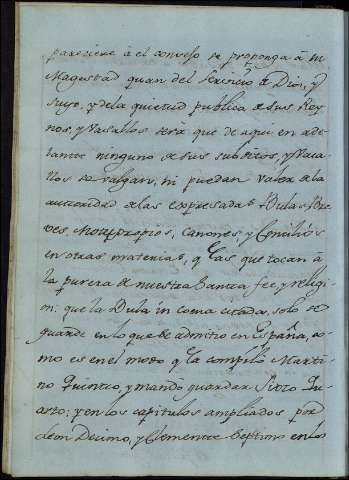 pareciere à el consejo se proponga à su
Magestad quan del servicio de Dios, y
suyo, y dela quietud publica de sus Rey
nos, y Vasallos sera que de aqui en ade
lante ninguno de sus subditos, y Vasa
llos se valgan, ni puedan valer dela
autoridad delas expresadas Bulas, Bre
ves, Motuproprios, canones, y Concilios
en otras materias, q las que tocan à
la pureza de nuestra Santa fee, y religi
on: que la Bula in coena citada, solo se
guarde en lo que se admitio en España, co
mo es en el modo q la compiló Marti
no Quinto, y mandó guardar Sixto Qu
arto; y en los capitulos ampliados por
Leon Decimo, y Clemente Septimo en los